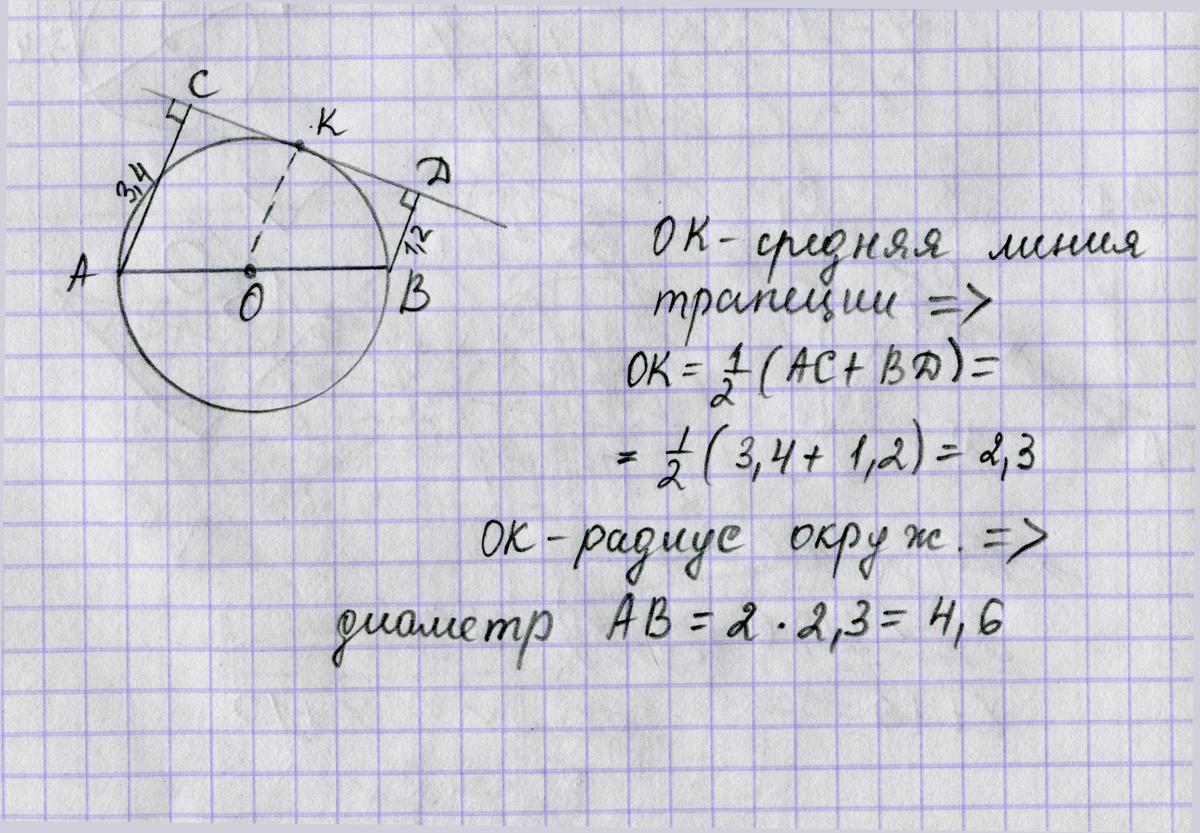 C
K
D
3,4
1,2
A
O
B
OK - средняя линия
трапеции =>
OK = 1/2 (AC + BD) =
= 1/2 (3,4 + 1,2) = 2,3
OK - радиус окруж. =>
диаметр AB = 2 · 2,3 = 4,6